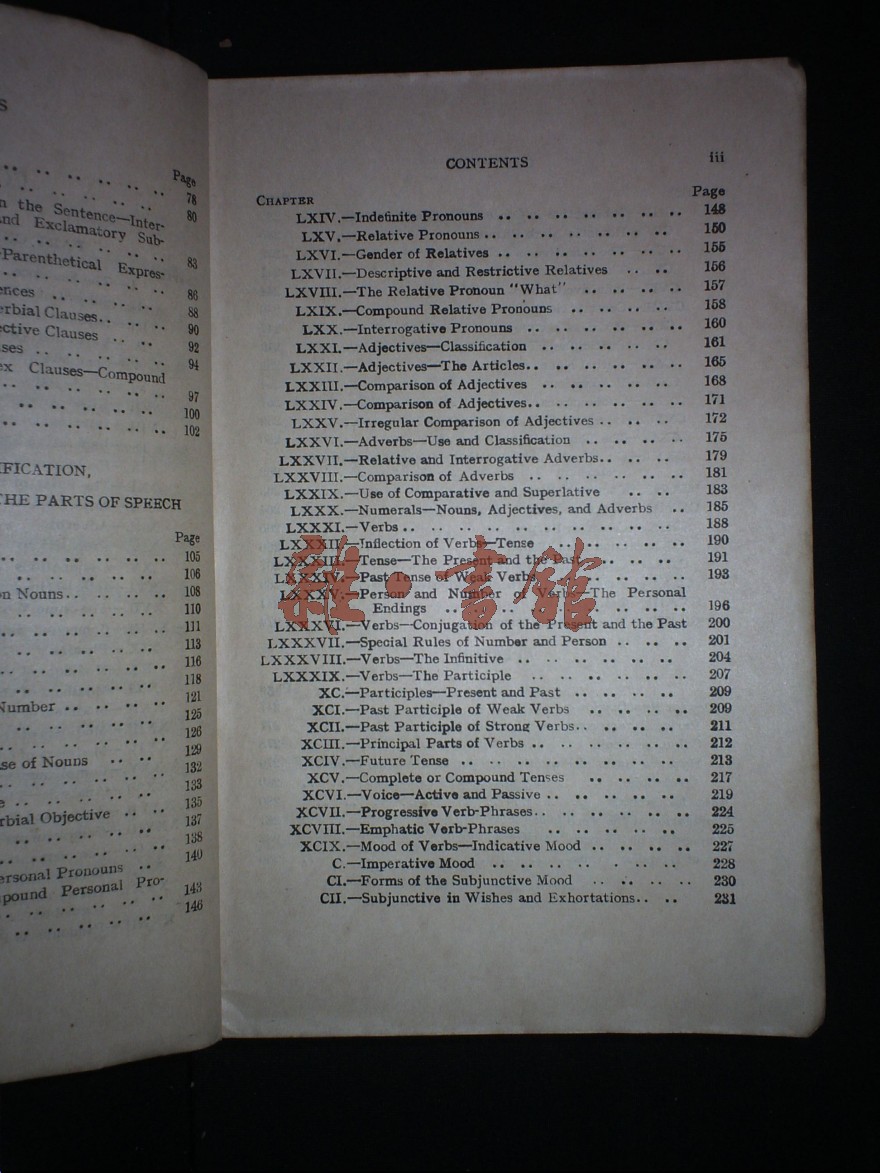 S
Page
78
n the Sentence—Inter- 80
nd Exclamatory Sub-
83
Parenthetical Expres-
86
ences 88
rbial Clauses 90
ective Clauses 92
ses 94
ex Clauses—Compound
97
100
102
IFICATION,
HE PARTS OF SPEECH
Page
105
106
on Nouns 108
110
111
113
116
118
121
Number 125
126
129
se of Nouns 132
133
135
rbial Objective 137
138
140
ersonal Pronouns
pound Personal Pro- 143
146
CONTENTS iii
CHAPTER Page
LXIV.—Indefinite Pronouns .. .. .. .. .. .. .. 148
LXV.—Relative Pronouns .. .. .. .. .. .. .. 150
LXVI.—Gender of Relatives .. .. .. .. .. .. .. 155
LXVII.—Descriptive and Restrictive Relatives .. .. 156
LXVIII.—The Relative Pronoun "What" .. .. .. .. 157
LXIX.—Compound Relative Pronouns .. .. .. .. 158
LXX.—Interrogative Pronouns .. .. .. .. .. .. 160
LXXI.—Adjectives—Classification .. .. .. .. .. 161
LXXII.—Adjectives—The Articles .. .. .. .. .. .. 165
LXXIII.—Comparison of Adjectives .. .. .. .. .. 168
LXXIV.—Comparison of Adjectives .. .. .. .. .. .. 171
LXXV.—Irregular Comparison of Adjectives .. .. .. 172
LXXVI.—Adverbs—Use and Classification .. .. .. .. 175
LXXVII.—Relative and Interrogative Adverbs .. .. .. 179
LXXVIII.—Comparison of Adverbs .. .. .. .. .. .. 181
LXXIX.—Use of Comparative and Superlative .. .. 183
LXXX.—Numerals—Nouns, Adjectives, and Adverbs .. 185
LXXXI.—Verbs .. .. .. .. .. .. .. .. .. .. 188
LXXXII.—Inflection of Verbs—Tense .. .. .. .. .. 190
LXXXIII.—Tense—The Present and the Past .. .. .. 191
LXXXIV.—Past Tense of Weak Verbs .. .. .. .. .. 193
LXXXV.—Person and Number of Verbs—The Personal
Endings .. .. .. .. .. .. .. .. .. 196
LXXXVI.—Verbs—Conjugation of the Present and the Past 200
LXXXVII.—Special Rules of Number and Person .. .. .. 201
LXXXVIII.—Verbs—The Infinitive .. .. .. .. .. .. 204
LXXXIX.—Verbs—The Participle .. .. .. .. .. .. 207
XC.—Participles—Present and Past .. .. .. .. 209
XCI.—Past Participle of Weak Verbs .. .. .. .. 209
XCII.—Past Participle of Strong Verbs .. .. .. .. 211
XCIII.—Principal Parts of Verbs .. .. .. .. .. .. 212
XCIV.—Future Tense .. .. .. .. .. .. .. .. 213
XCV.—Complete or Compound Tenses .. .. .. .. 217
XCVI.—Voice—Active and Passive .. .. .. .. .. 219
XCVII.—Progressive Verb-Phrases .. .. .. .. .. .. 224
XCVIII.—Emphatic Verb-Phrases .. .. .. .. .. 225
XCIX.—Mood of Verbs—Indicative Mood .. .. .. .. 227
C.—Imperative Mood .. .. .. .. .. .. .. 228
CI.—Forms of the Subjunctive Mood .. .. .. .. 230
CII.—Subjunctive in Wishes and Exhortations .. .. 231
雜·書館